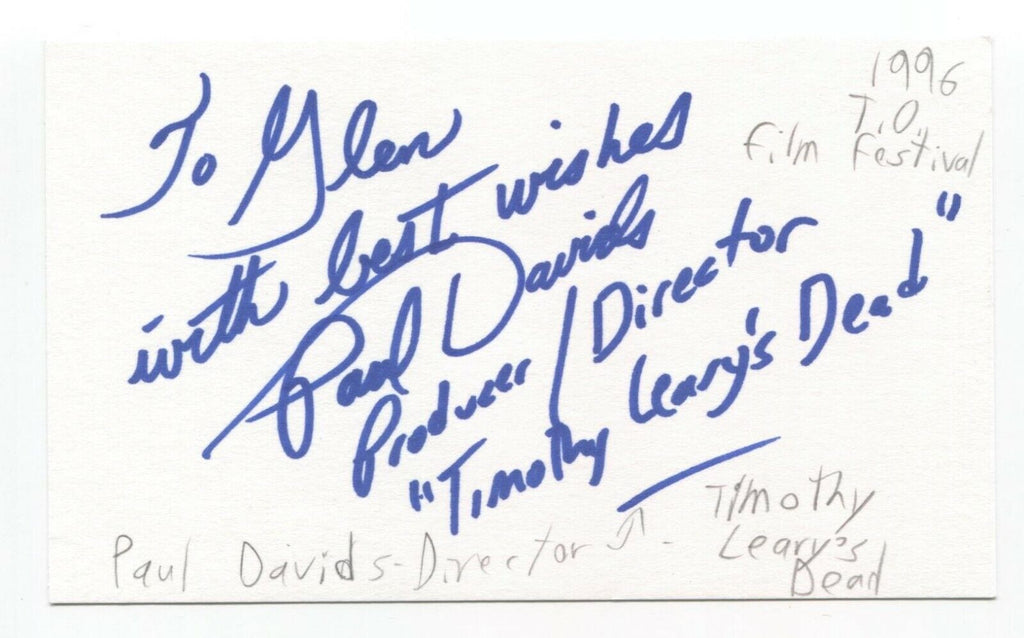 To Glen
with best wishes
Paul Davids
Producer/Director
"Timothy Leary's Dead"
1996
T.O.
Film Festival
Paul Davids-Director ↑ - Timothy
Leary's
Dead